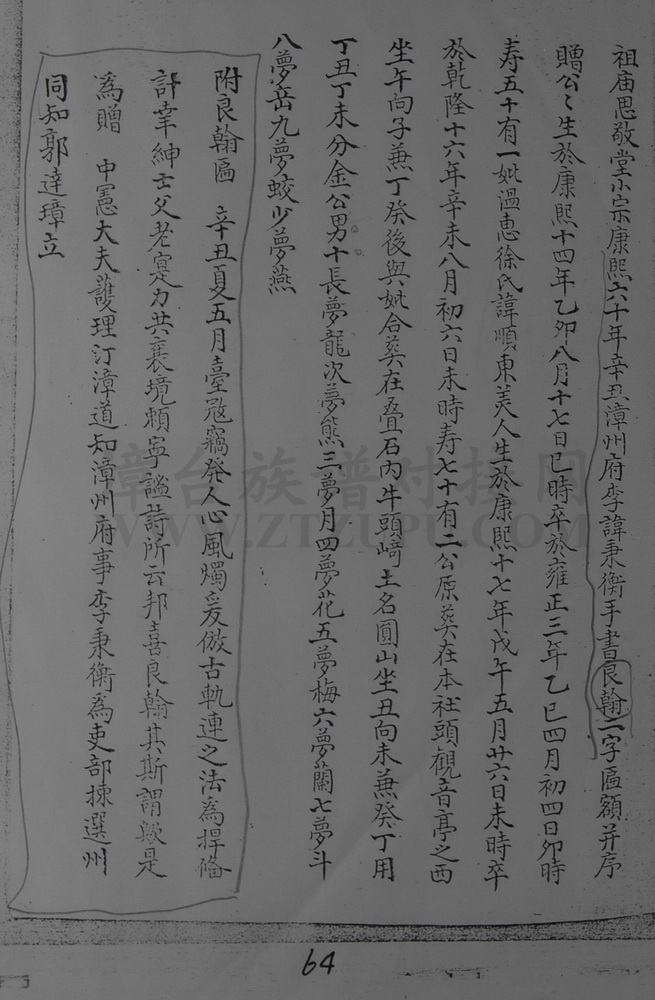 祖庙思敬堂小宗康熙六十年辛丑漳州府李諱秉衡手書良翰二字匾額并序
贈公〻生於康熙十四年乙卯八月十七日巳時卒於雍正三年乙巳四月初四日卯時
寿五十有一妣温惠徐氏諱順東美人生於康熙十七年戊午五月廿六日未時卒
於乾隆十六年辛未八月初六日未時寿七十有二公原葬在本社頭觀音亭之西
坐午向子兼丁癸後與妣合葬在叠石内牛頭崎土名圓山坐丑向未兼癸丁用
丁丑丁未分金公男十長夢龍次夢熊三夢月四夢花五夢梅六夢蘭七夢斗
八夢岳九夢蛟少夢燕
附良翰匾 辛丑夏五月臺寇竊発人心風燭爰倣古軌連之法為捍偹
計幸紳士父老寔力共襄境頼寧謐詩所云邦喜良翰其斯謂歟是
為贈 中憲大夫護理汀漳道知漳州府事李秉衡為吏部揀選州
同知郭達璋立
章台族谱对接网
WWW.ZTZUPU.COM
64